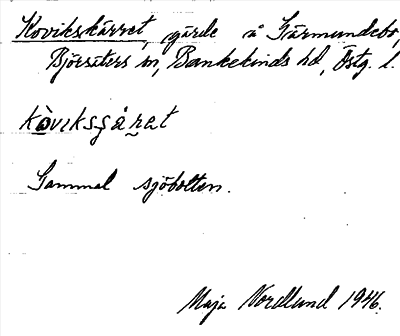 Kovikskärret, gärde å Gärmundebo,
Björsäters sn, Bankekinds hd, Östg. l.
kòviksşåret
Gammal sjöbotten.
Maja Nordlund 1946.